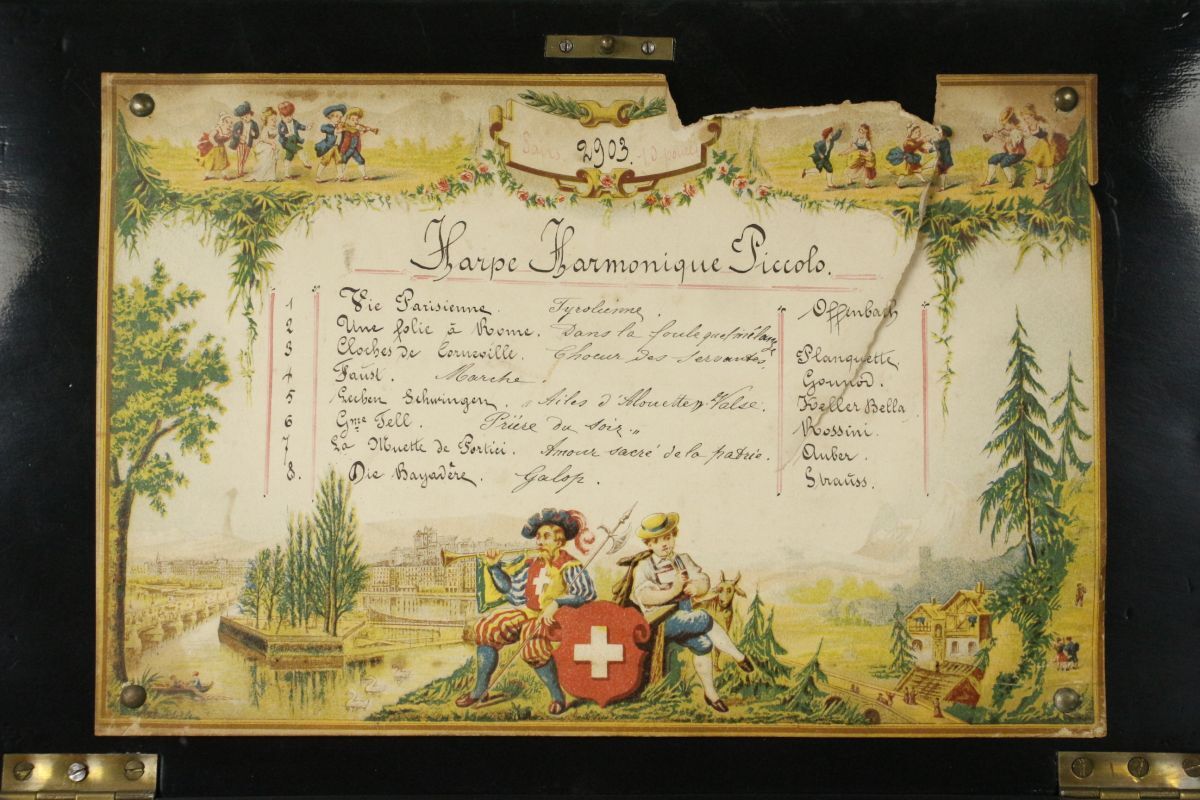 8 airs. 10 pouces
2903.
Harpe Harmonique Piccolo.
1 Vie Parisienne. Tyrolienne. Offenbach
2 Une folie à Rome. Dans la foule
3 Cloches de Corneville. Choeur des servantes. Planquette.
4 Faust. Marche. Gounod.
5 Lerchen Schwingen. „Ailes d'Alouette„ Valse. Keller Bella
6 Gme Tell. Prière du soir„ Rossini.
7 La Muette de Portici. Amour sacré de la patrie. Auber.
8. Die Bayadère. Galop. Strauss.